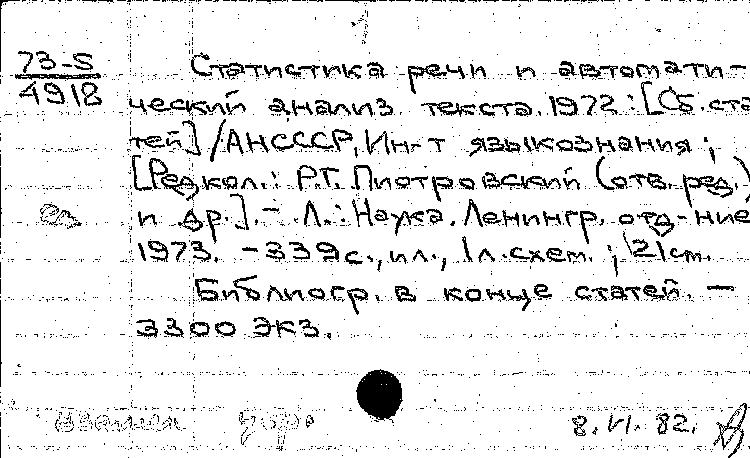 1
73-S
4918
Статистика речи и автомати-
ческий анализ текста. 1972 : [Сб. ста
тей] / АН СССР, Ин-т языкознания ;
[Редкол.: Р.Г. Пиотровский (отв. ред.)
и др.]. - Л. : Наука. Ленингр. отд-ние
1973. - 339 с., ил., 1 л. схем. ; 21 см.
Библиогр. в конце статей. —
3300 экз.
8.VI.82.